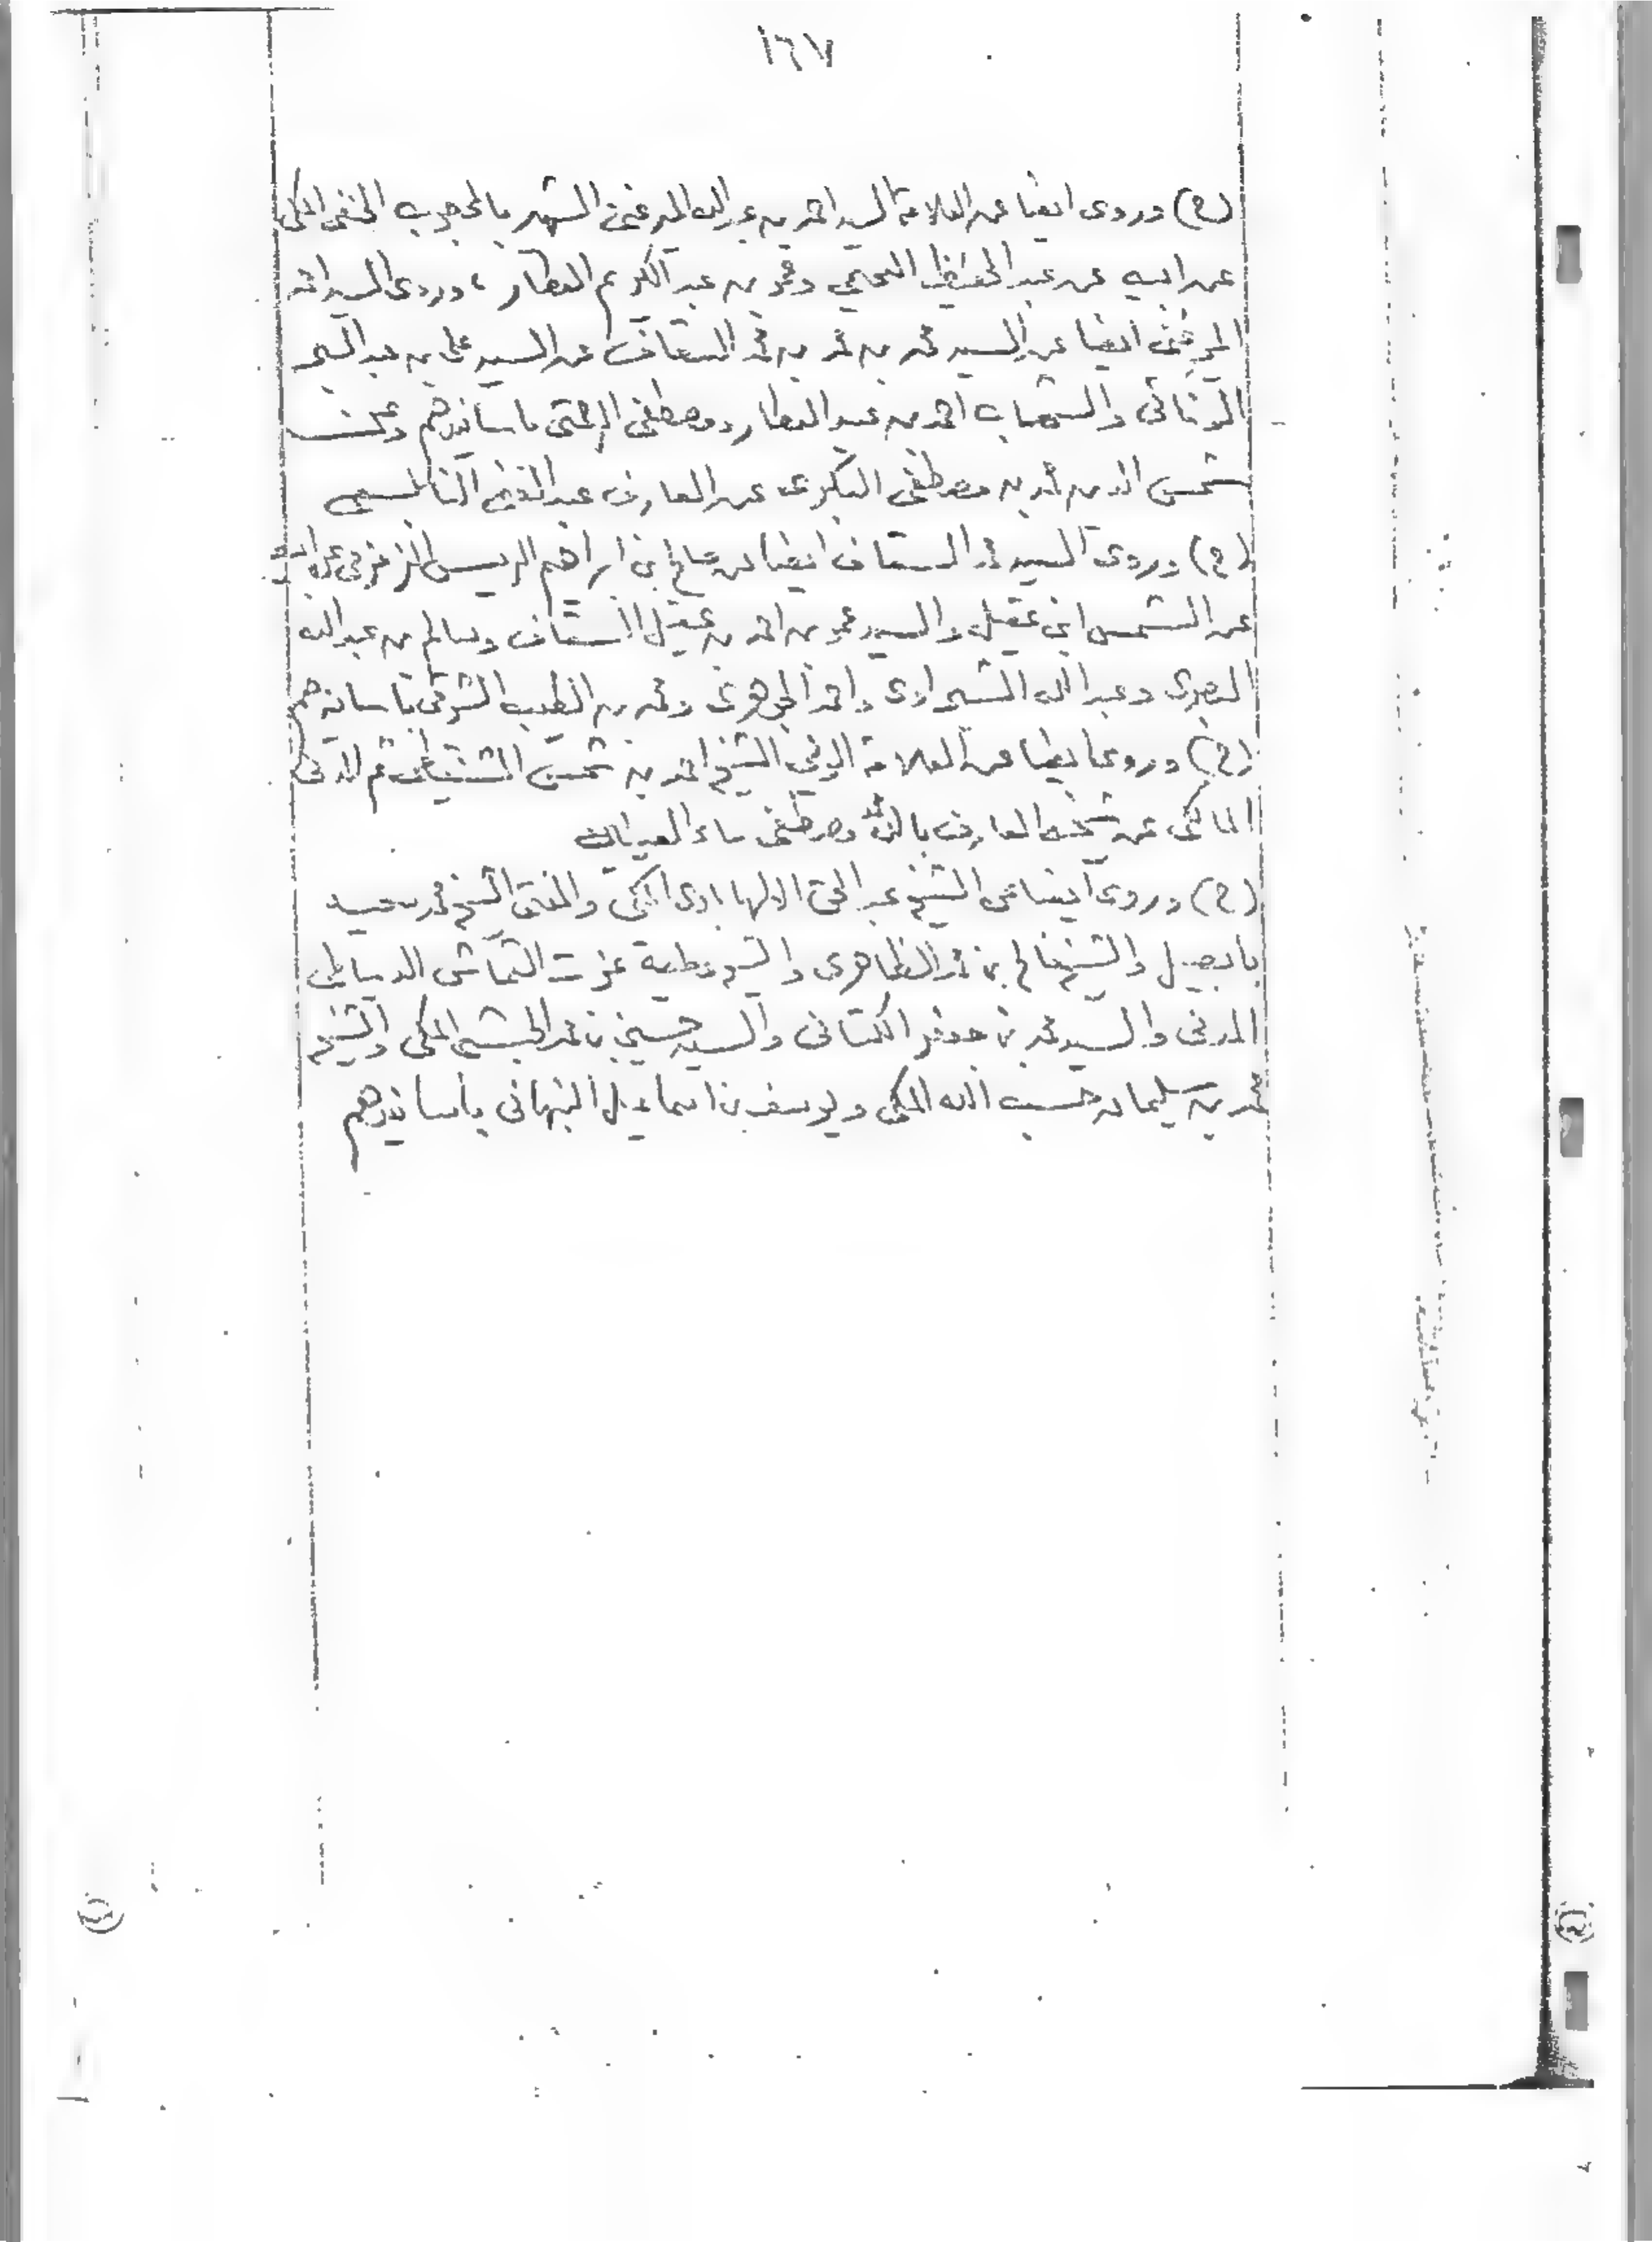 ١٦٧
(ح) وروى ايضا عن العلامة السيد احمد بن عبد الله المرغني الشهير بالمحجوب الحنفي المكي
عن ابيه عن عبد الحفيظ العجيمي وعمر بن عبد الكريم العطار ، وروى السيد احمد
المرغني ايضا عن السيد محمد بن محمد بن محمد السقاف عن السيد علي بن عبد البر
الونائي والشهاب احمد بن عبيد العطار ومصطفى الرحمتي باسانيدهم وعن
شمس الدين محمد بن مصطفى البكري عن العارف عبد الغني النابلسي
(ح) وروى السيد محمد السقاف ايضا عن صالح بن ابراهيم الريس الزمزمي
عن الشمس ابن عقيل والسيد عمر بن احمد بن عقيل السقاف وسالم بن عبد الله
البصري وعبد الله الشبراوي واحمد الجوهري ومحمد بن الطيب الشرقي باسانيدهم
(ح) وروى ايضا عن العلامة الشيخ احمد بن شمس الشنقيطي ثم المدني
المالكي عن شيخه العارف بالله محمد مصطفى ماء العينين
(ح) وروى ايضا عن الشيخ عبد الحق الالهابادي المكي والمفتي الشيخ محمد سعيد
بابصيل والشيخ فالح بن محمد الظاهري والشيخ عطية عزت القماش الدمياطي
المدني والسيد محمد بن جعفر الكتاني والسيد حسين بن محمد الحبشي المكي والشيخ
محمد بن سليمان حسب الله المكي ويوسف بن اسماعيل النبهاني بأسانيدهم